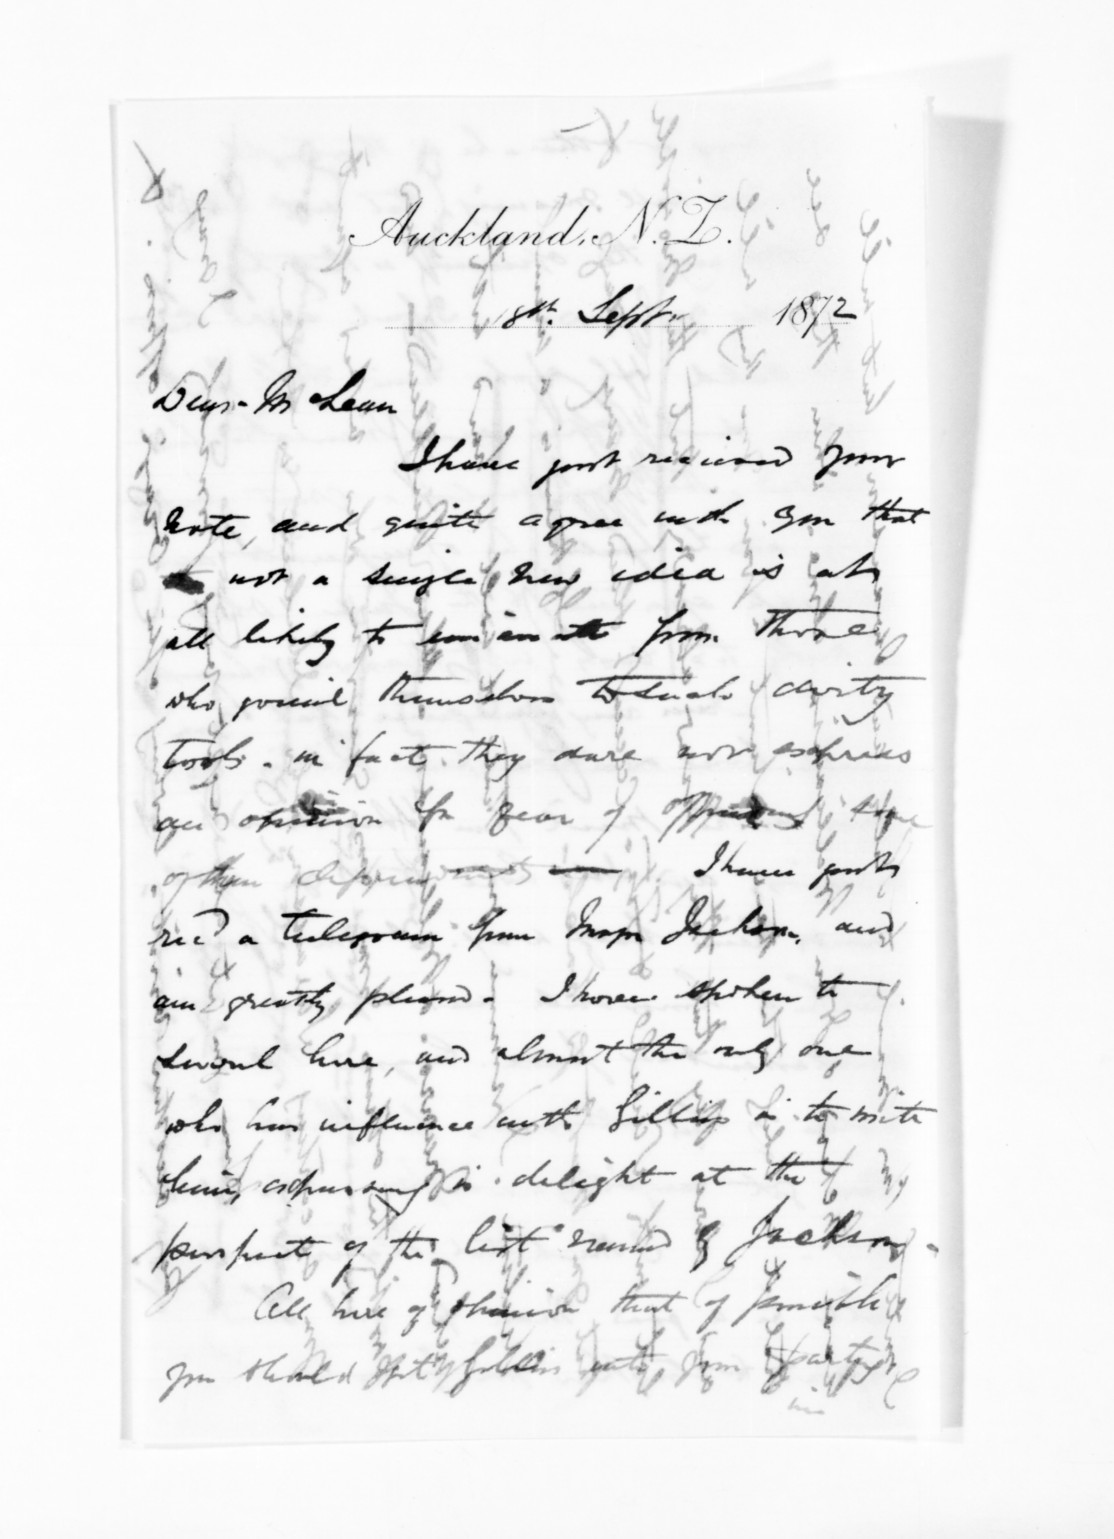 Auckland, N.Z.
18th. Sept. 1872
Dear McLean
I have just received your
note, and quite agree with you that
not a single new idea is at
all likely to eminate from those
who join themselves to such dirty
tools - in fact they dare not express
an opinion for fear of offending some
of their I have just
recd a telegram from Major Jackson, and
am greatly pleased - I have spoken to
several here, and almost the only one
who has influence with Gillies is to write
him, expressing his delight at the
prospect of the list named by Jackson -
All here of opinion that if possible
you should get Gillies into your party
in